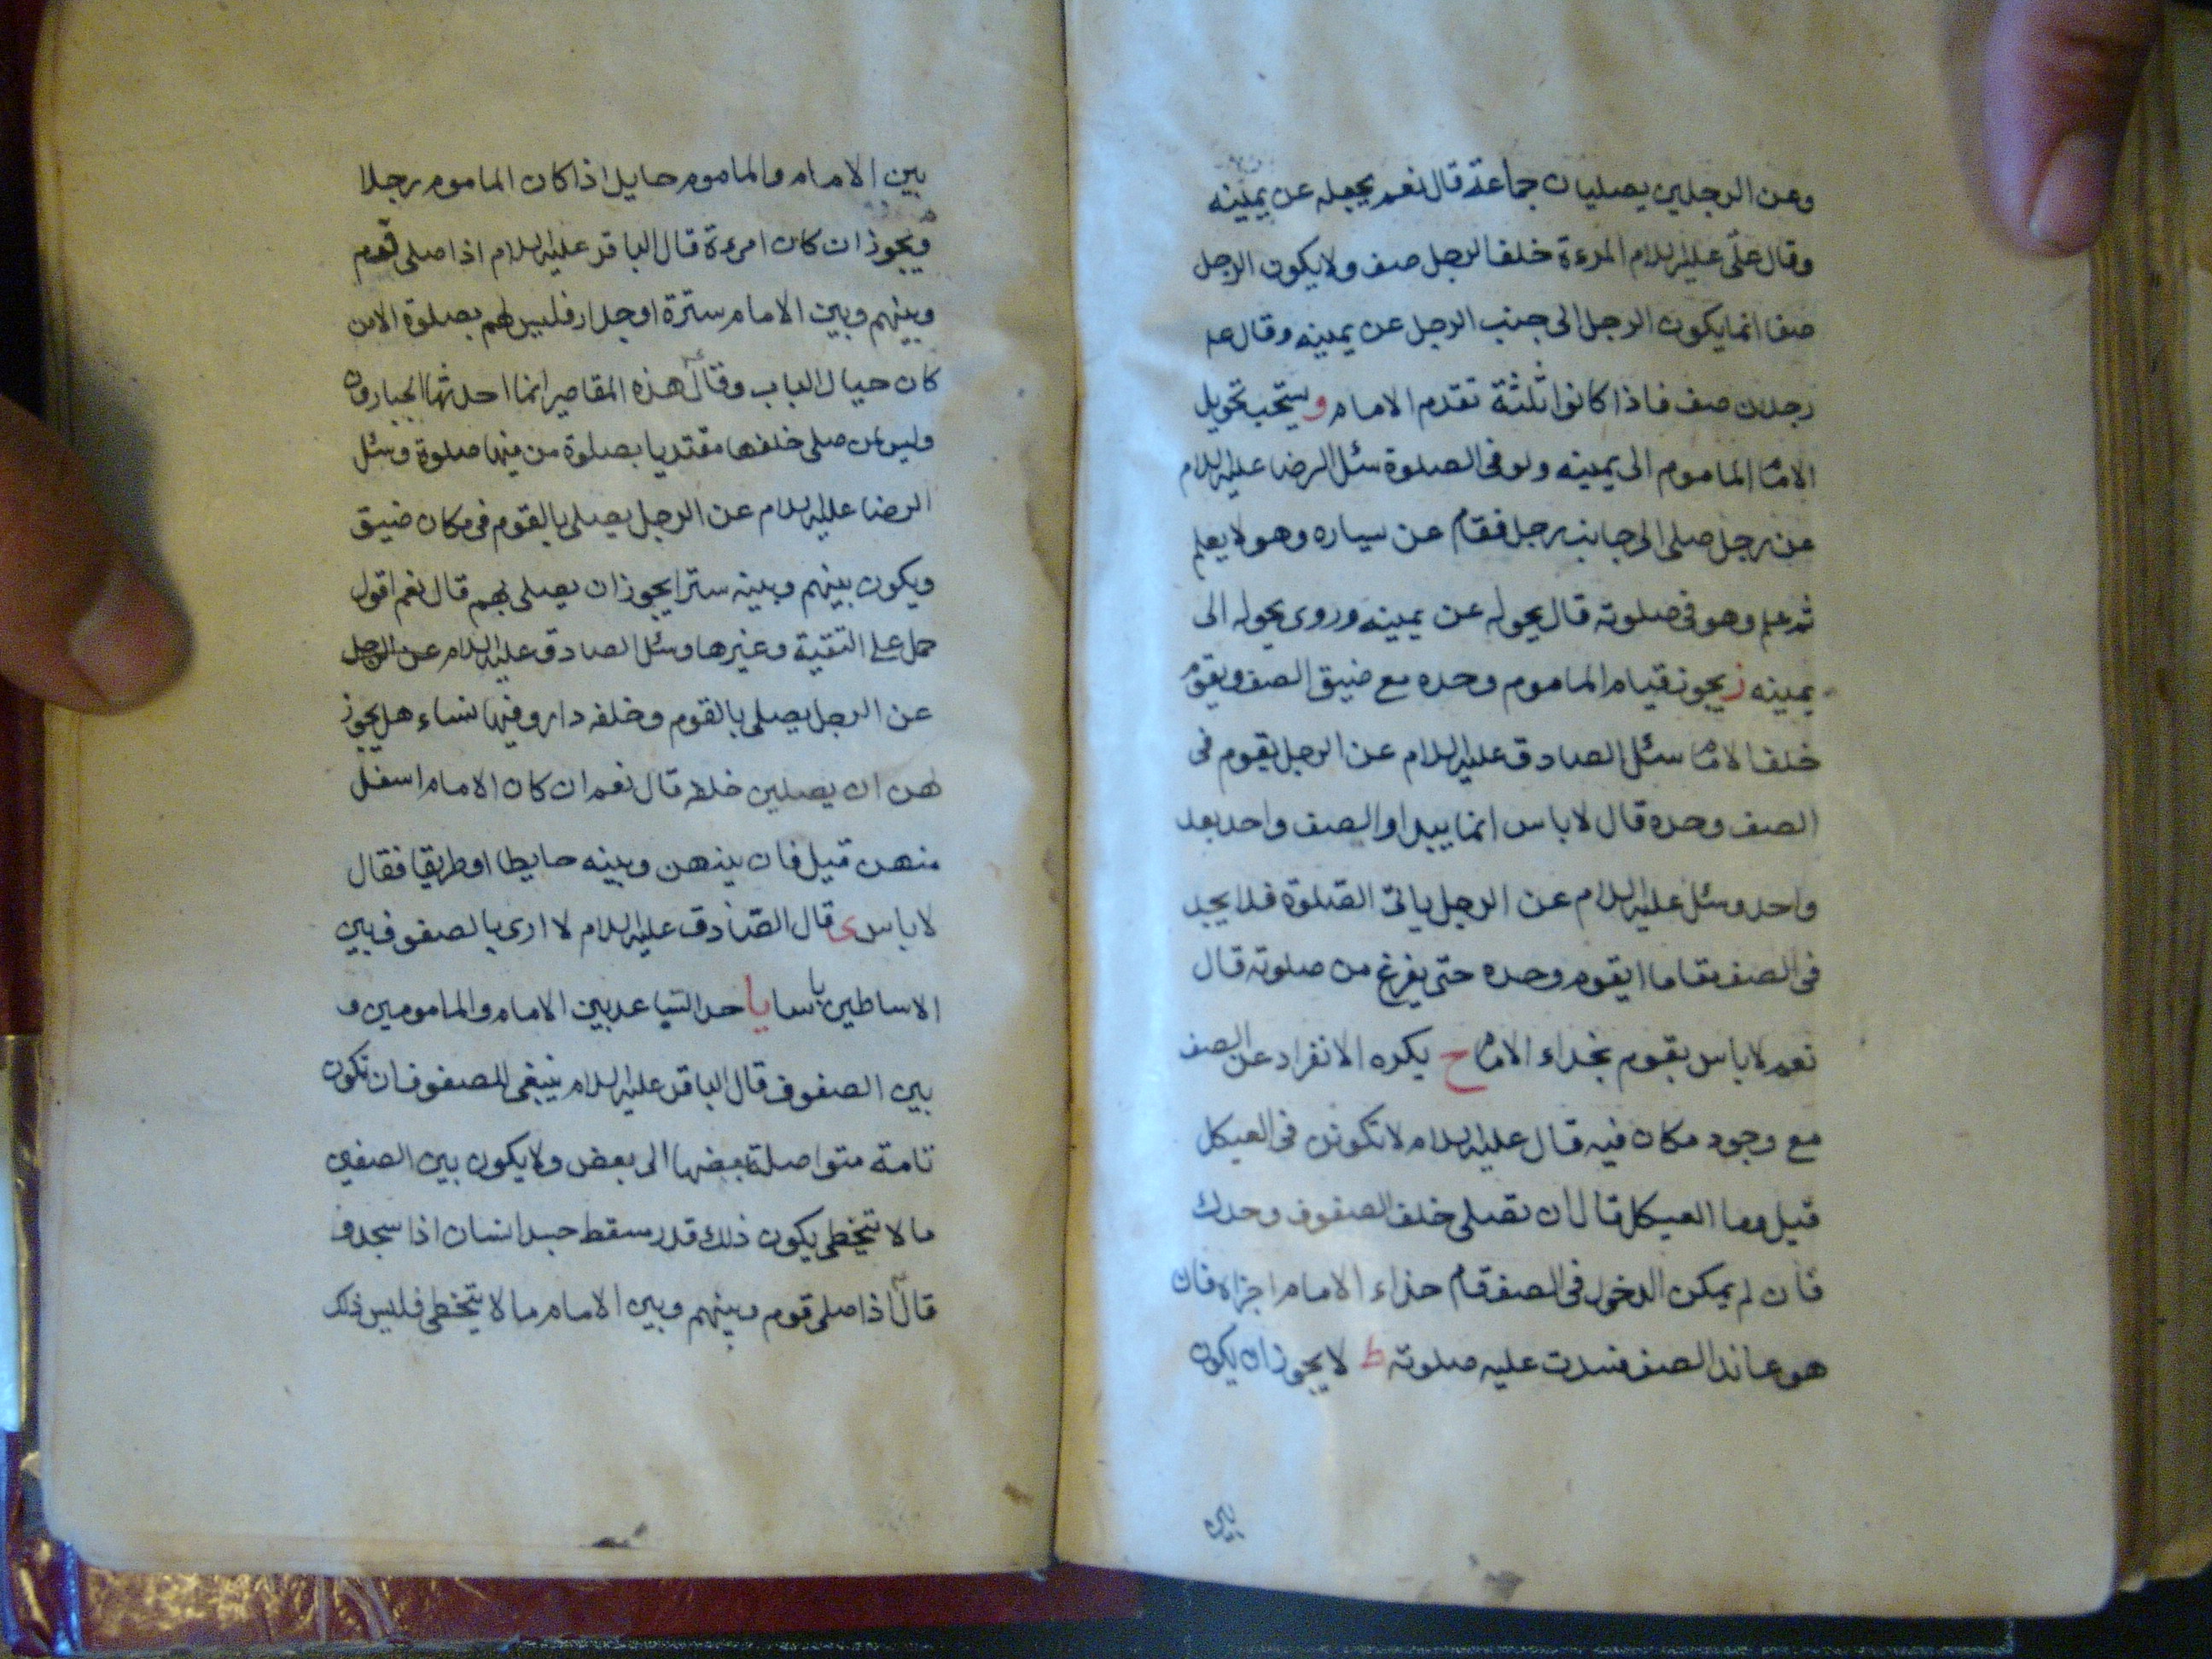 وعن الرجلين يصليان جماعة قال نعم يجعله عن يمينه
وقال علّى عليه السلام المرءة خلف الرجل صف ولا يكون الرجل
صفا انما يكون الرجل الى جنب الرجل عن يمينه وقال ع
رجلان صف فاذا كانوا ثلثة تقدم الامام و يستحب تحويل
الامام الماموم الى يمينه ولو فى الصلوة سئل الرضا عليه السلام
عن رجل صلى الى جانب رجل فقام عن يساره وهو لا يعلم
ثم علم وهو فى صلوته قال يحوله عن يمينه وروى يحوله الى
يمينه ز يجوز قيام الماموم وحده مع ضيق الصف ويقوم
خلف الامام سئل الصادق عليه السلام عن الرجل يقوم فى
الصف وحده قال لا باس انما يبدا و الصف واحد بعد
واحد وسئل عليه السلام عن الرجل ياتى الصّلوة فلا يجد
فى الصف مقاما ايقوم وحده حتى يفرغ من صلوته قال
نعم لا باس يقوم بحذاء الامام ح يكره الانفراد عن الصف
مع وجود مكان فيه قال عليه السلام لا تكونن فى العيكل
قيل وما العيكل قال ان تصلى خلف الصفوف وحدك
فان لم يمكن الدخول فى الصف قام حذاء الامام اجزاه فان
هو عاند الصف فسدت عليه صلوته ط لا يجوز ان يكون
بين
بين الامام والماموم حايل اذا كان الماموم رجلا
ويجوز ان كان امرءة قال الباقر عليه السلام اذا صلى قوم
وبينهم وبين الامام سترة او جدار فليس لهم بصلوة الا من
كان حيال الباب وقال ع هذه المقاصير انما احدثها الجبارون
وليس لمن صلى خلفها مقتديا بصلوة من فيها صلوة وسئل
الرضا عليه السلام عن الرجل يصلى بالقوم فى مكان ضيق
ويكون بينهم وبينه ستر ايجوز ان يصلى بهم قال نعم اقول
حمل على التقية وغيرها وسئل الصادق عليه السلام عن الرجل
عن الرجل يصلى بالقوم وخلفه دار وفيها نساء هل يجوز
لهن ان يصلين خلفه قال نعم ان كان الامام اسفل
منهن قيل فان بينهن وبينه حايطا او طريقا فقال
لا باس ى قال الصّادق عليه السلام لا ارى بالصفوف بين
الاساطين باسا يا حد التباعد بين الامام والمامومين و
بين الصفوف قال الباقر عليه السلام ينبغى للصفوف ان تكون
تامة متواصلة بعضها الى بعض ولا يكون بين الصفين
ما لا يتخطى يكون ذلك قدر مسقط جسد انسان اذا سجد و
قال ع اذا صلى قوم وبينهم وبين الامام ما لا يتخطى فليس ذلك